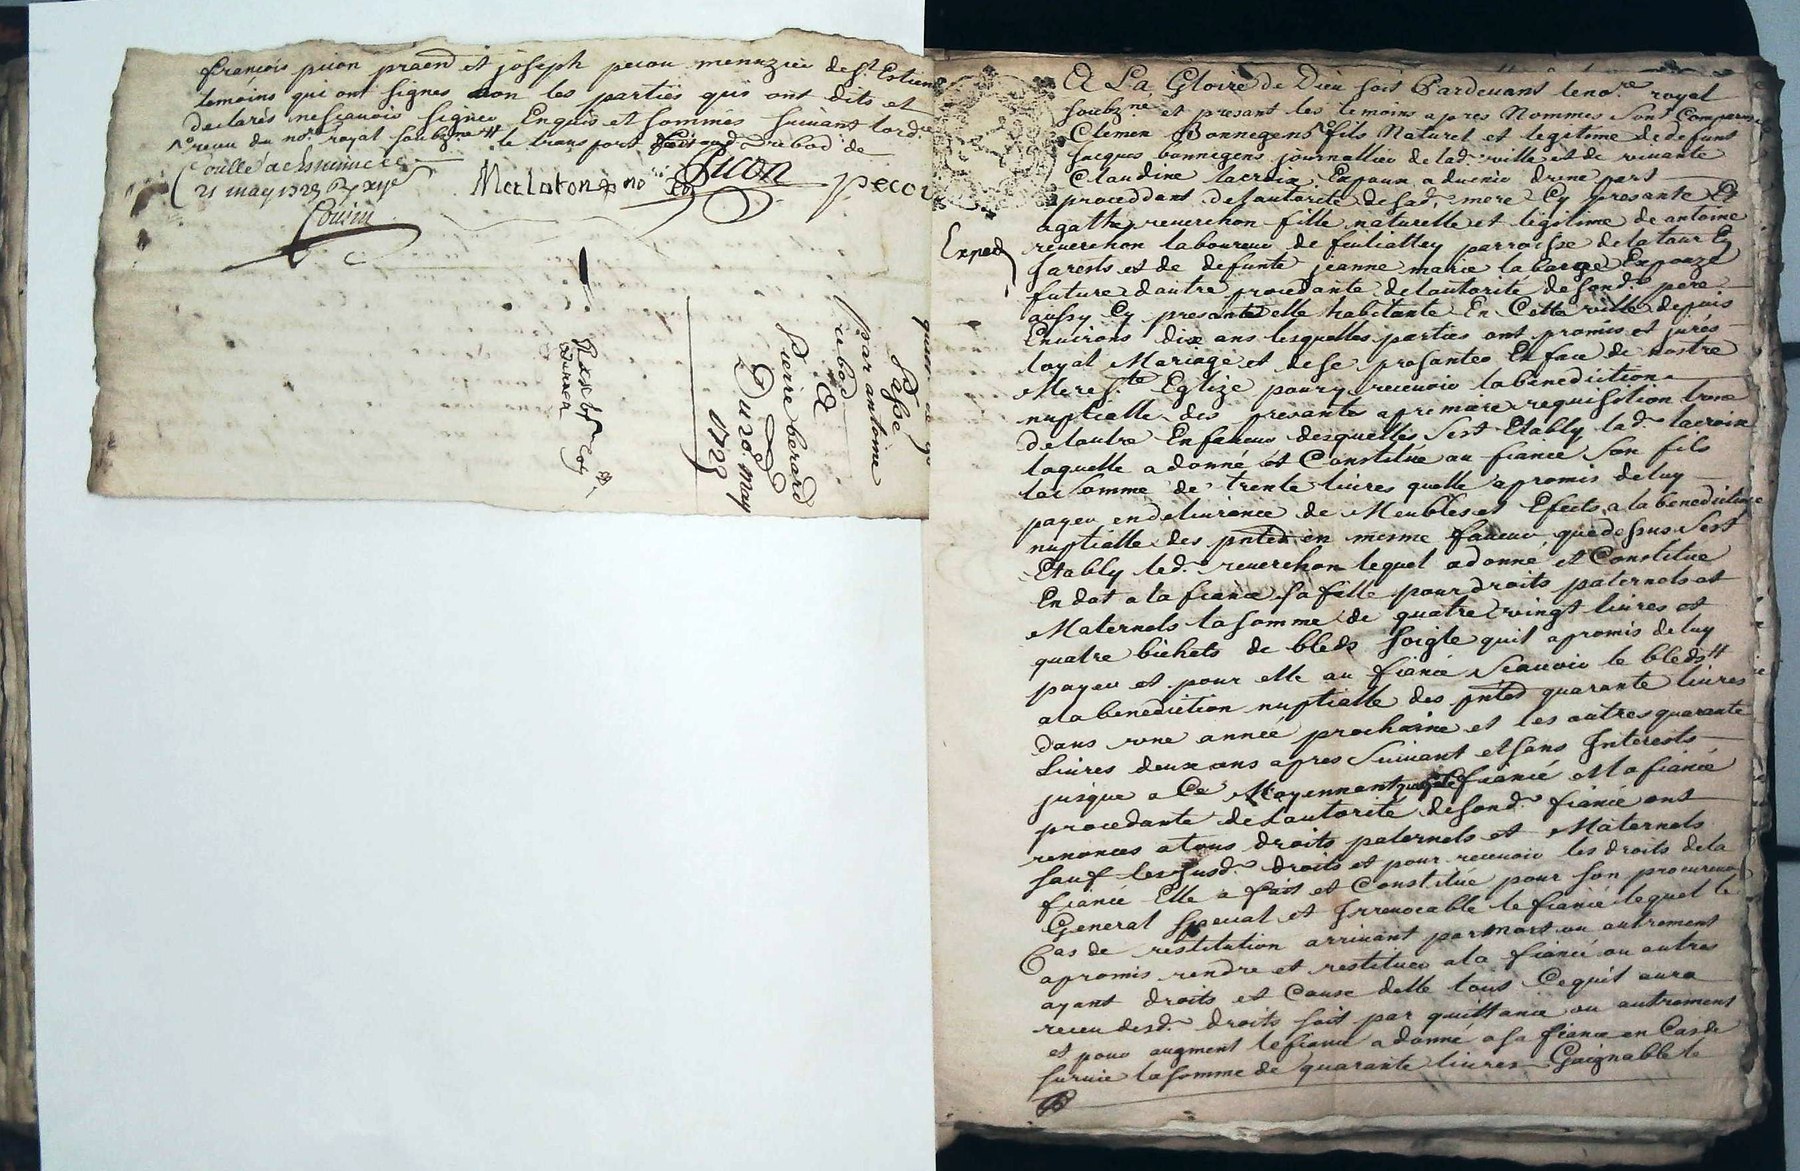 francois picon praend et joseph pecou menuzier de St Estienne
temoins qui ont signes non les partiés qui ont dits et
declarés ne scavoir signer Enquis et sommés suivant lord.ce
receu du no.re royal soubz.ne le transport dribod de
21 may 1729
Cousin
Merlaton no.re
Picon
pecou
quittance
passé
par antoine
ribod
A
Pierre berard
Du 20 may
1729
Exped
A La Gloire de Dieu soit Pardevant le no.re royal
soubz.ne et presant les temoins apres Nommes sont Comparus
Clemen Bonnegens fils Naturel et legitime de defunt
Jacques bonnegens journallier de lad. ville et de vivante
Claudine lacroix Epoux advenir dune part
procedant de lautorité de sad. mere Cy presante Et
agathe reverchon fille naturelle et legitime de antoine
reverchon laboureur de parroisse de la tour En
Jarests et de defunte jeanne marie labarge Expouze
future dautre procedante de lautorité de sond. pere
aussy Cy presant elle habitante En Cette ville depuis
Environs dix ans lesquelles parties ont promis et jurés
loyal Mariage et de se presanter En face de nostre
Mere S.te Eglize pour y recevoir la benediction
nuptialle des presante a premiere requisition lune
de lautre En faveur desquelles sest Etably lad. lacroix
laquelle a donné et Constitué au fiancé son fils
la somme de trente livres quelle a promis de luy
payer en delivrance de Meubles et Efects a la benediction
nuptialle des pntes en mesme faveur que dessus sest
Etably led. reverchon lequel a donné et Constitué
En dot a la fiancé sa fille pour droits paternels et
Maternels la somme de quatre vingt livres et
quatre bichets de bleds soigle quil a promis de luy
payer et pour elle au fiancé scavoir le bleds
a la benediction nuptialle des pntes quarante livres
dans une année prochaine et les autres quarante
livres deux ans apres suivant et sans Interests
jusque a Ce Moyennant quoy le fiancé et la fiancé
procedante de lautorité de sond. fiancé ont
renoncés a tous droits paternels et Maternels
sauf les susd. droits et pour recevoir les droits de la
fiancé Elle a fait et Constitué pour son procureur
General special et Irrevocable le fiancé lequel le
Cas de restitution arrivant par mort ou autrement
a promis rendre et restituer a la fiancé ou autres
ayant droits et Cause delle tous Ce quil aura
receu desd. droits soit par quittance ou autrement
et pour augment le fiancé a donné a sa fiancé en Cas de
survie la somme de quarante livres Gaignable le